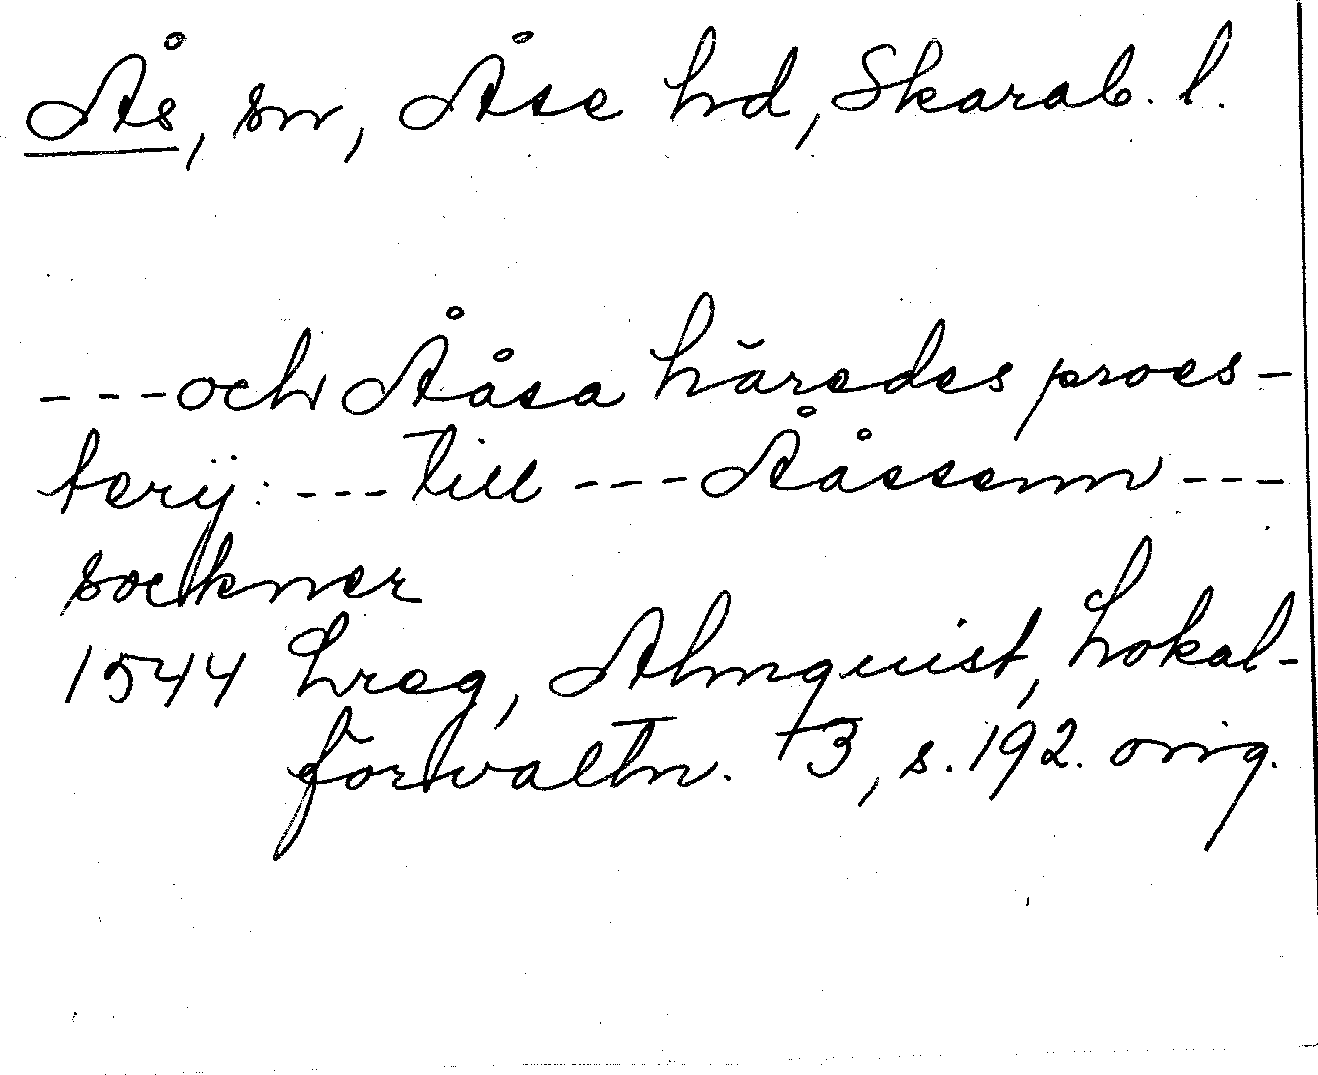 Ås, sn, Åse hd, Skarab. l.
---och Ååsa häredes proes-
terij: ---till ---Ååssenn ---
sockner
1544 Lreg, Almquist, Lokal-
förvaltn. +3, s. 192. orig.